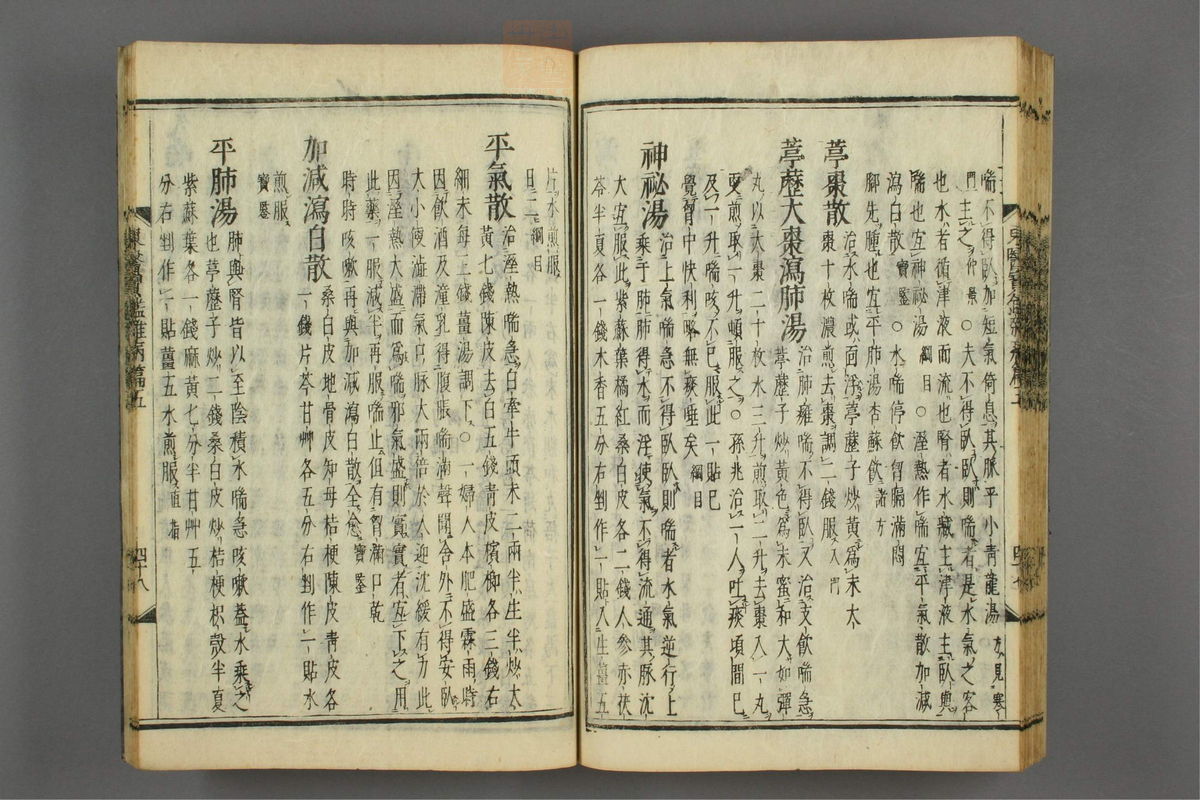 喘不得臥加短氣倚息其脈平小青龍湯方見寒
門主之仲景○夫不得臥臥則喘者是水氣之客
也水者循津液而流也腎者水藏主津液主臥與
喘也宜神祕湯綱目○濕熱作喘宜平氣散加減
瀉白散寶鑑○水喘停飮胷膈滿悶
脚先腫也宜平肺湯杏蘇飮諸方
葶棗散治水喘或面浮葶藶子炒黃爲末大
棗十枚濃煎去棗調二錢服入門
葶藶大棗瀉肺湯治肺雍喘不得臥又治支飮喘急
葶藶子炒黃色爲末蜜和大如彈
丸以大棗二十枚水三升煎取二升去棗入一丸
更煎取一升頓服之○孫兆治一人吐痰頃間已
及一升喘咳不已服此一貼已
覺胷中快利略無痰唾矣綱目
神祕湯治上氣喘急不得臥臥則喘者水氣逆行上
乘于肺肺得水而浮使氣不得流通其脈沈
大宜服此紫蘇葉橘紅桑白皮各二錢人參赤茯
苓半夏各一錢木香五分右剉作一貼入生薑五
片水煎服
日二綱目
平氣散治濕熱喘急白牽牛頭末二兩半生半炒大
黃七錢陳皮去白五錢靑皮檳榔各三錢右
細末每三錢薑湯調下○一婦人本肥盛霖雨時
因飮酒及潼乳得腹脹喘滿聲聞舍外不得安臥
大小便澁滯氣口脈大兩倍於人迎沈緩有力此
因濕熱大盛而爲喘邪氣盛則實實者宜下之用
此藥一服減半再服喘止但有胷滿口乾
時時咳嗽再與加減瀉白散全愈寶鑑
加減瀉白散桑白皮地骨皮知母桔梗陳皮靑皮各
一錢片芩甘艸各五分右剉作一貼水
煎服
寶鑑
平肺湯肺與腎皆以至陰積水喘急咳嗽蓋水乘之
也葶藶子炒二錢桑白皮炒桔梗枳殼半夏
紫蘇葉各一錢麻黃七分半甘艸五
分右剉作一貼薑五水煎服直指
東醫寶鑑雜病篇五
四十八